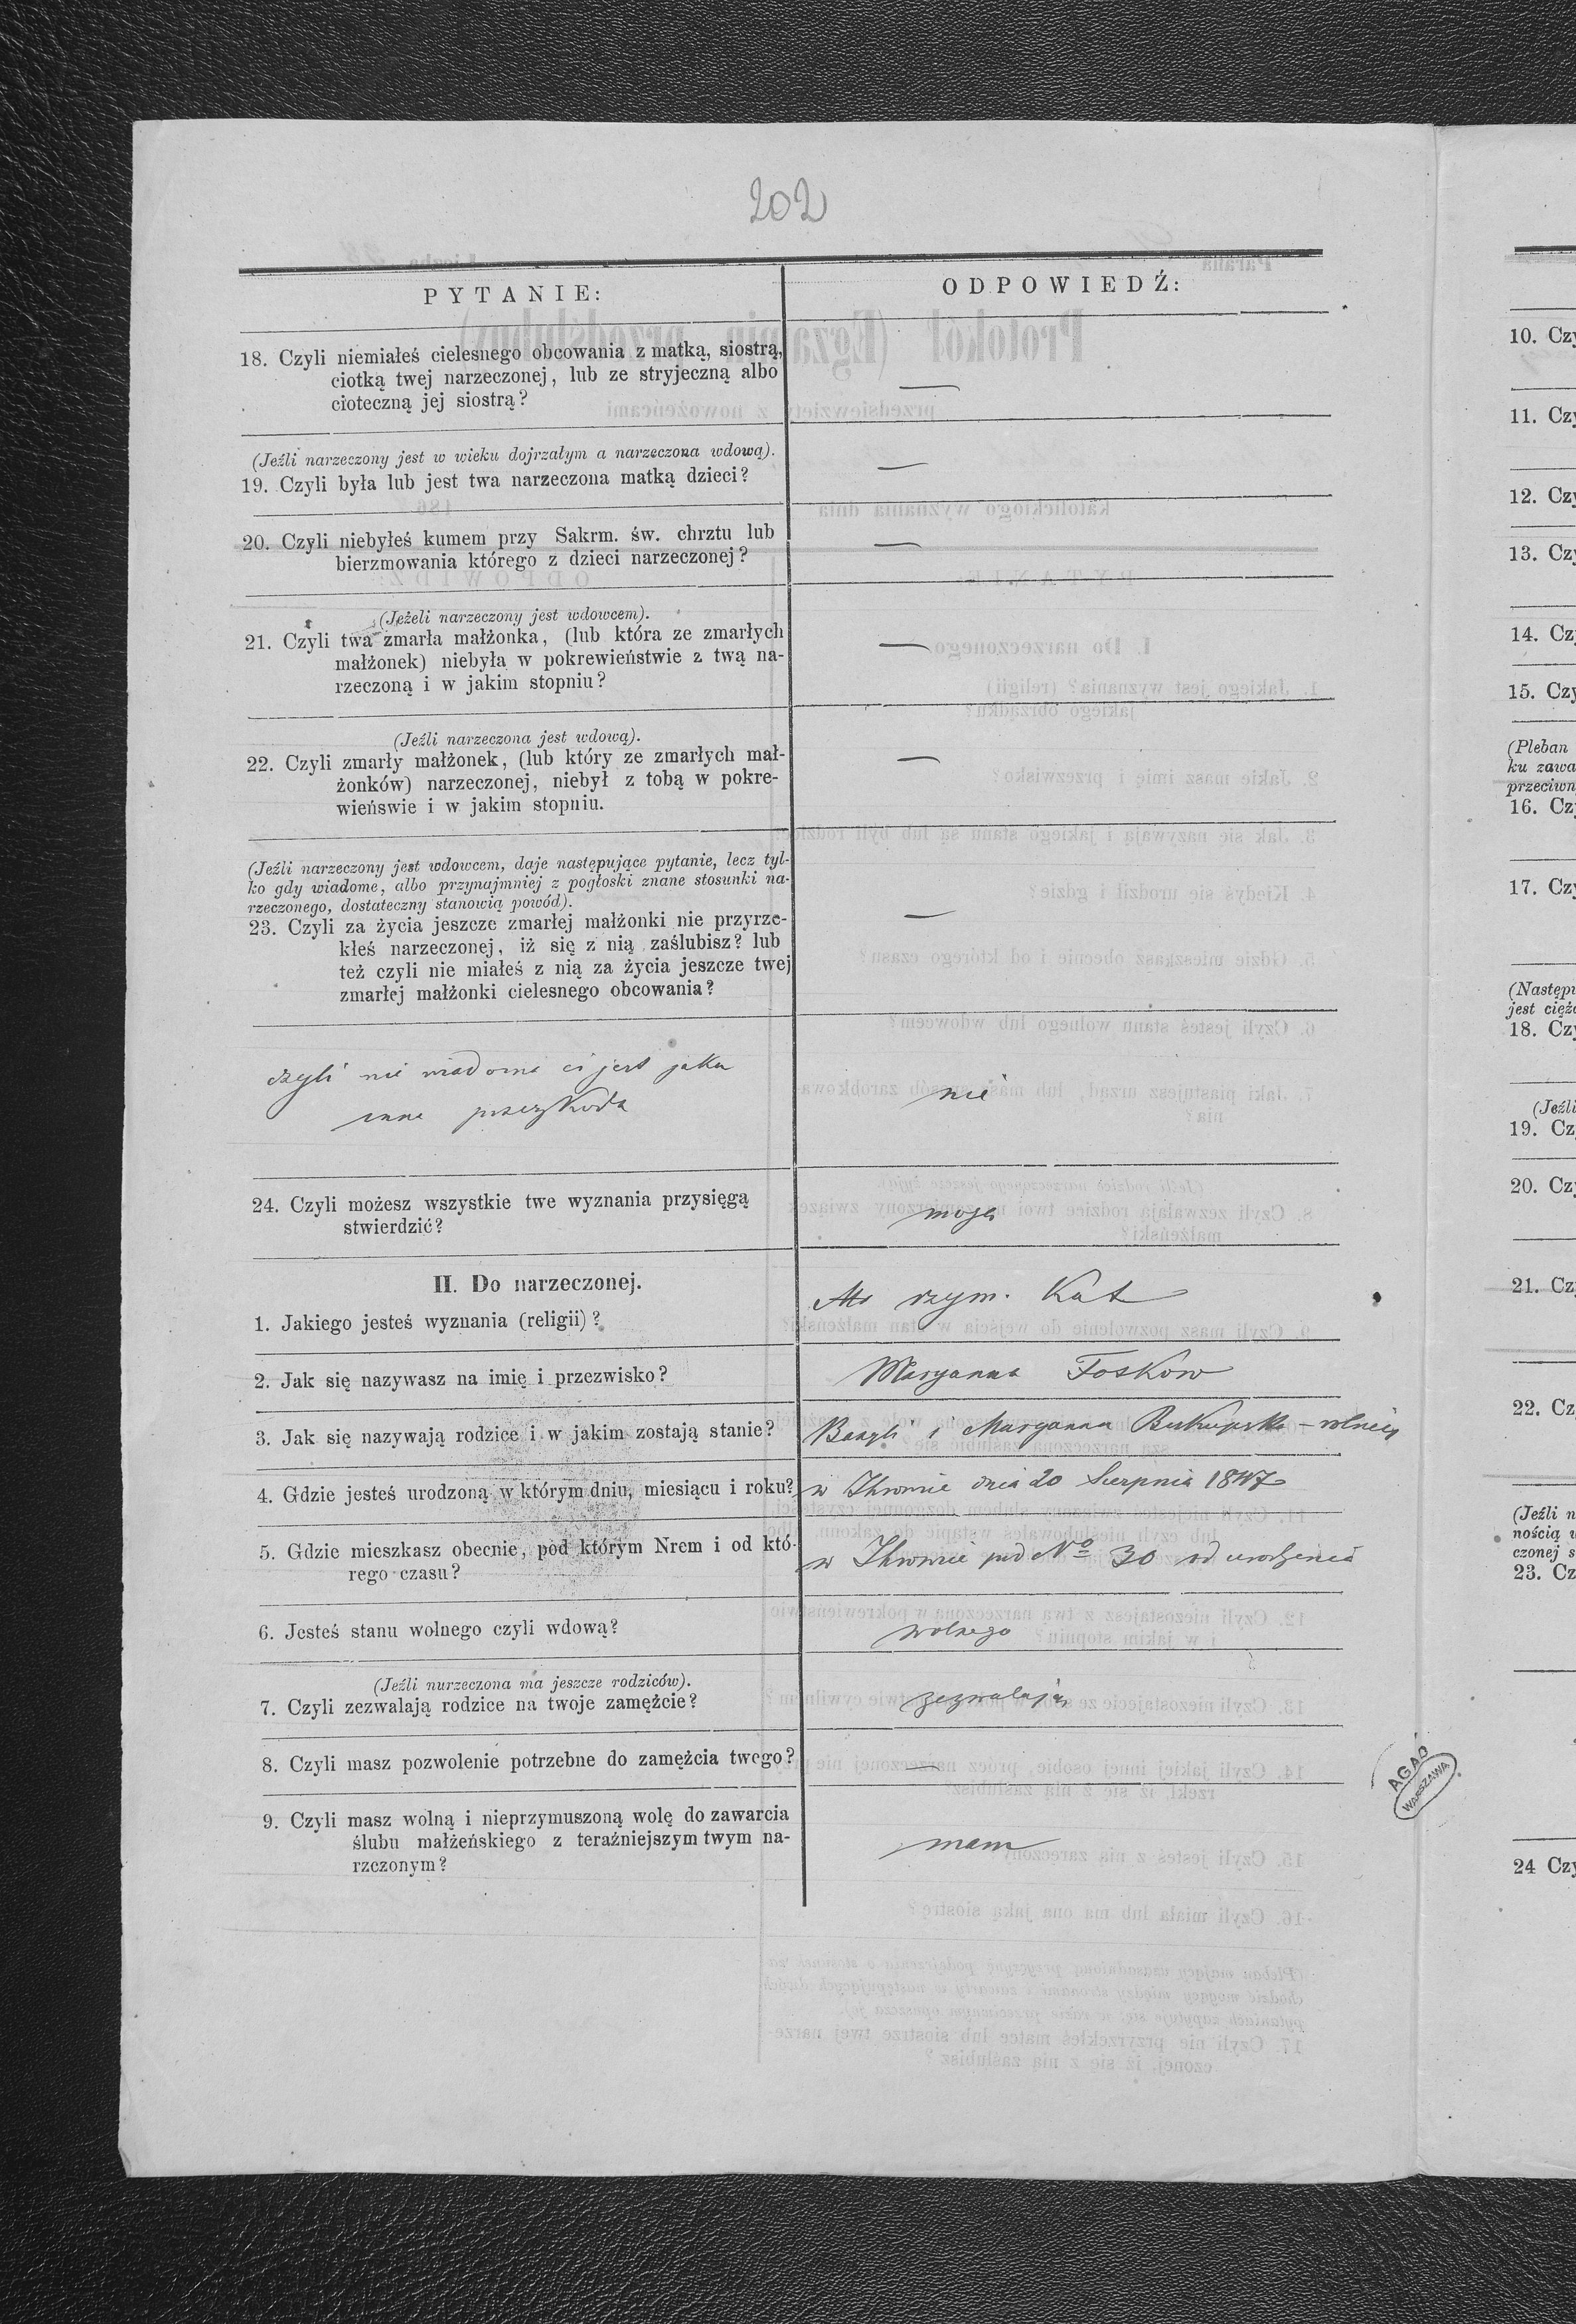 202
PYTANIE:
ODPOWIEDŹ:
18. Czyli niemiałeś cielesnego obcowania z matką, siostrą,
ciotką twej narzeczonej, lub ze stryjeczną albo
cioteczną jej siostrą?
—
(Jeźli narzeczony jest w wieku dojrzałym a narzeczona wdową).
19. Czyli była lub jest twa narzeczona matką dzieci?
—
20. Czyli niebyłeś kumem przy Sakrm. św. chrztu lub
bierzmowania którego z dzieci narzeczonej?
—
(Jeżeli narzeczony jest wdowcem).
21. Czyli twa zmarła małżonka, (lub która ze zmarłych
małżonek) niebyła w pokrewieństwie z twą na-
rzeczoną i w jakim stopniu?
—
(Jeźli narzeczona jest wdową).
22. Czyli zmarły małżonek, (lub który ze zmarłych mał-
żonków) narzeczonej, niebył z tobą w pokre-
wieńswie i w jakim stopniu.
—
(Jeźli narzeczony jest wdowcem, daje następujące pytanie, lecz tyl-
ko gdy wiadome, albo przynajmniej z pogłoski znane stosunki na-
rzeczonego, dostateczny stanowią powód).
23. Czyli za życia jeszcze zmarłej małżonki nie przyrze-
kłeś narzeczonej, iż się z nią zaślubisz? lub
też czyli nie miałeś z nią za życia jeszcze twej
zmarłej małżonki cielesnego obcowania?
—
czyli nie wiadoma ci jest jaka
inna przeszkoda
nie
24. Czyli możesz wszystkie twe wyznania przysięgą
stwierdzić?
mogę
II. Do narzeczonej.
1. Jakiego jesteś wyznania (religii)?
rzym. Kat
2. Jak się nazywasz na imię i przezwisko?
Maryanna Fosków
3. Jak się nazywają rodzice i w jakim zostają stanie?
Bazyli i Maryanna Biskupska – rolnicy
4. Gdzie jesteś urodzoną w którym dniu, miesiącu i roku?
w dnia 20 Sierpnia 1847
5. Gdzie mieszkasz obecnie, pod którym Nrem i od któ-
rego czasu?
w pod No 30 od urodzenia
6. Jesteś stanu wolnego czyli wdową?
wolnego
(Jeźli nurzeczona ma jeszcze rodziców).
7. Czyli zezwalają rodzice na twoje zamężcie?
zezwalają
8. Czyli masz pozwolenie potrzebne do zamężcia twego?
—
9. Czyli masz wolną i nieprzymuszoną wolę do zawarcia
ślubu małżeńskiego z teraźniejszym twym na-
rzczonym?
mam
AGAD
WARSZAWA
10. Czy
11. Czy
12. Czy
13. Czy
14. Czy
15. Czy
(Pleban
ku zawa
przeciwn
16. Czy
17. Czy
(Następu
jest cięż
18. Czy
(Jeźli
19. Cz
20. Czy
21. Czy
22. Cz
(Jeźli n
nością w
czonej s
23. Cz
24 Czy